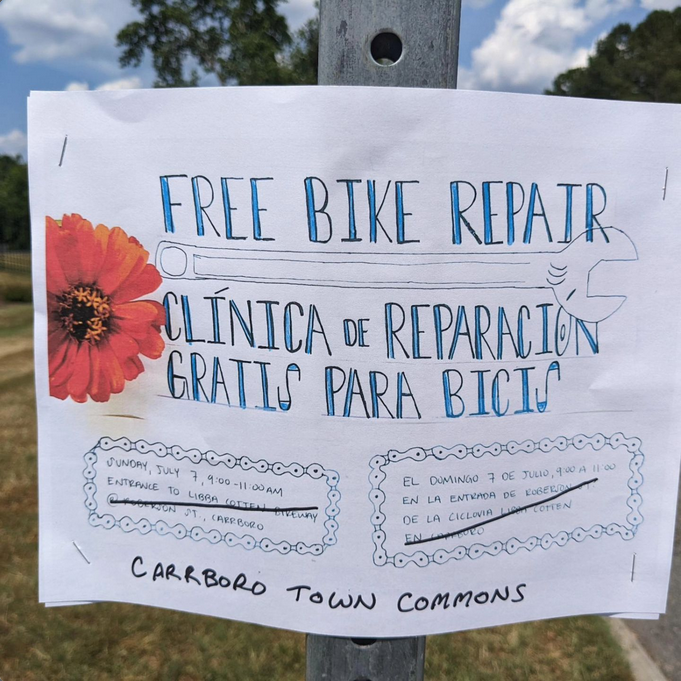 FREE BIKE REPAIR
CLÍNICA DE REPARACIÓN
GRATIS PARA BICIS
SUNDAY, JULY 7, 9:00-11:00AM
ENTRANCE TO LIBBA COTTEN BIKEWAY
@ ROBERSON ST., CARRBORO
EL DOMINGO 7 DE JULIO, 9:00 A 11:00
EN LA ENTRADA DE ROBERSON ST.
DE LA CICLOVIA LIBBA COTTEN
EN CARRBORO
CARRBORO TOWN COMMONS